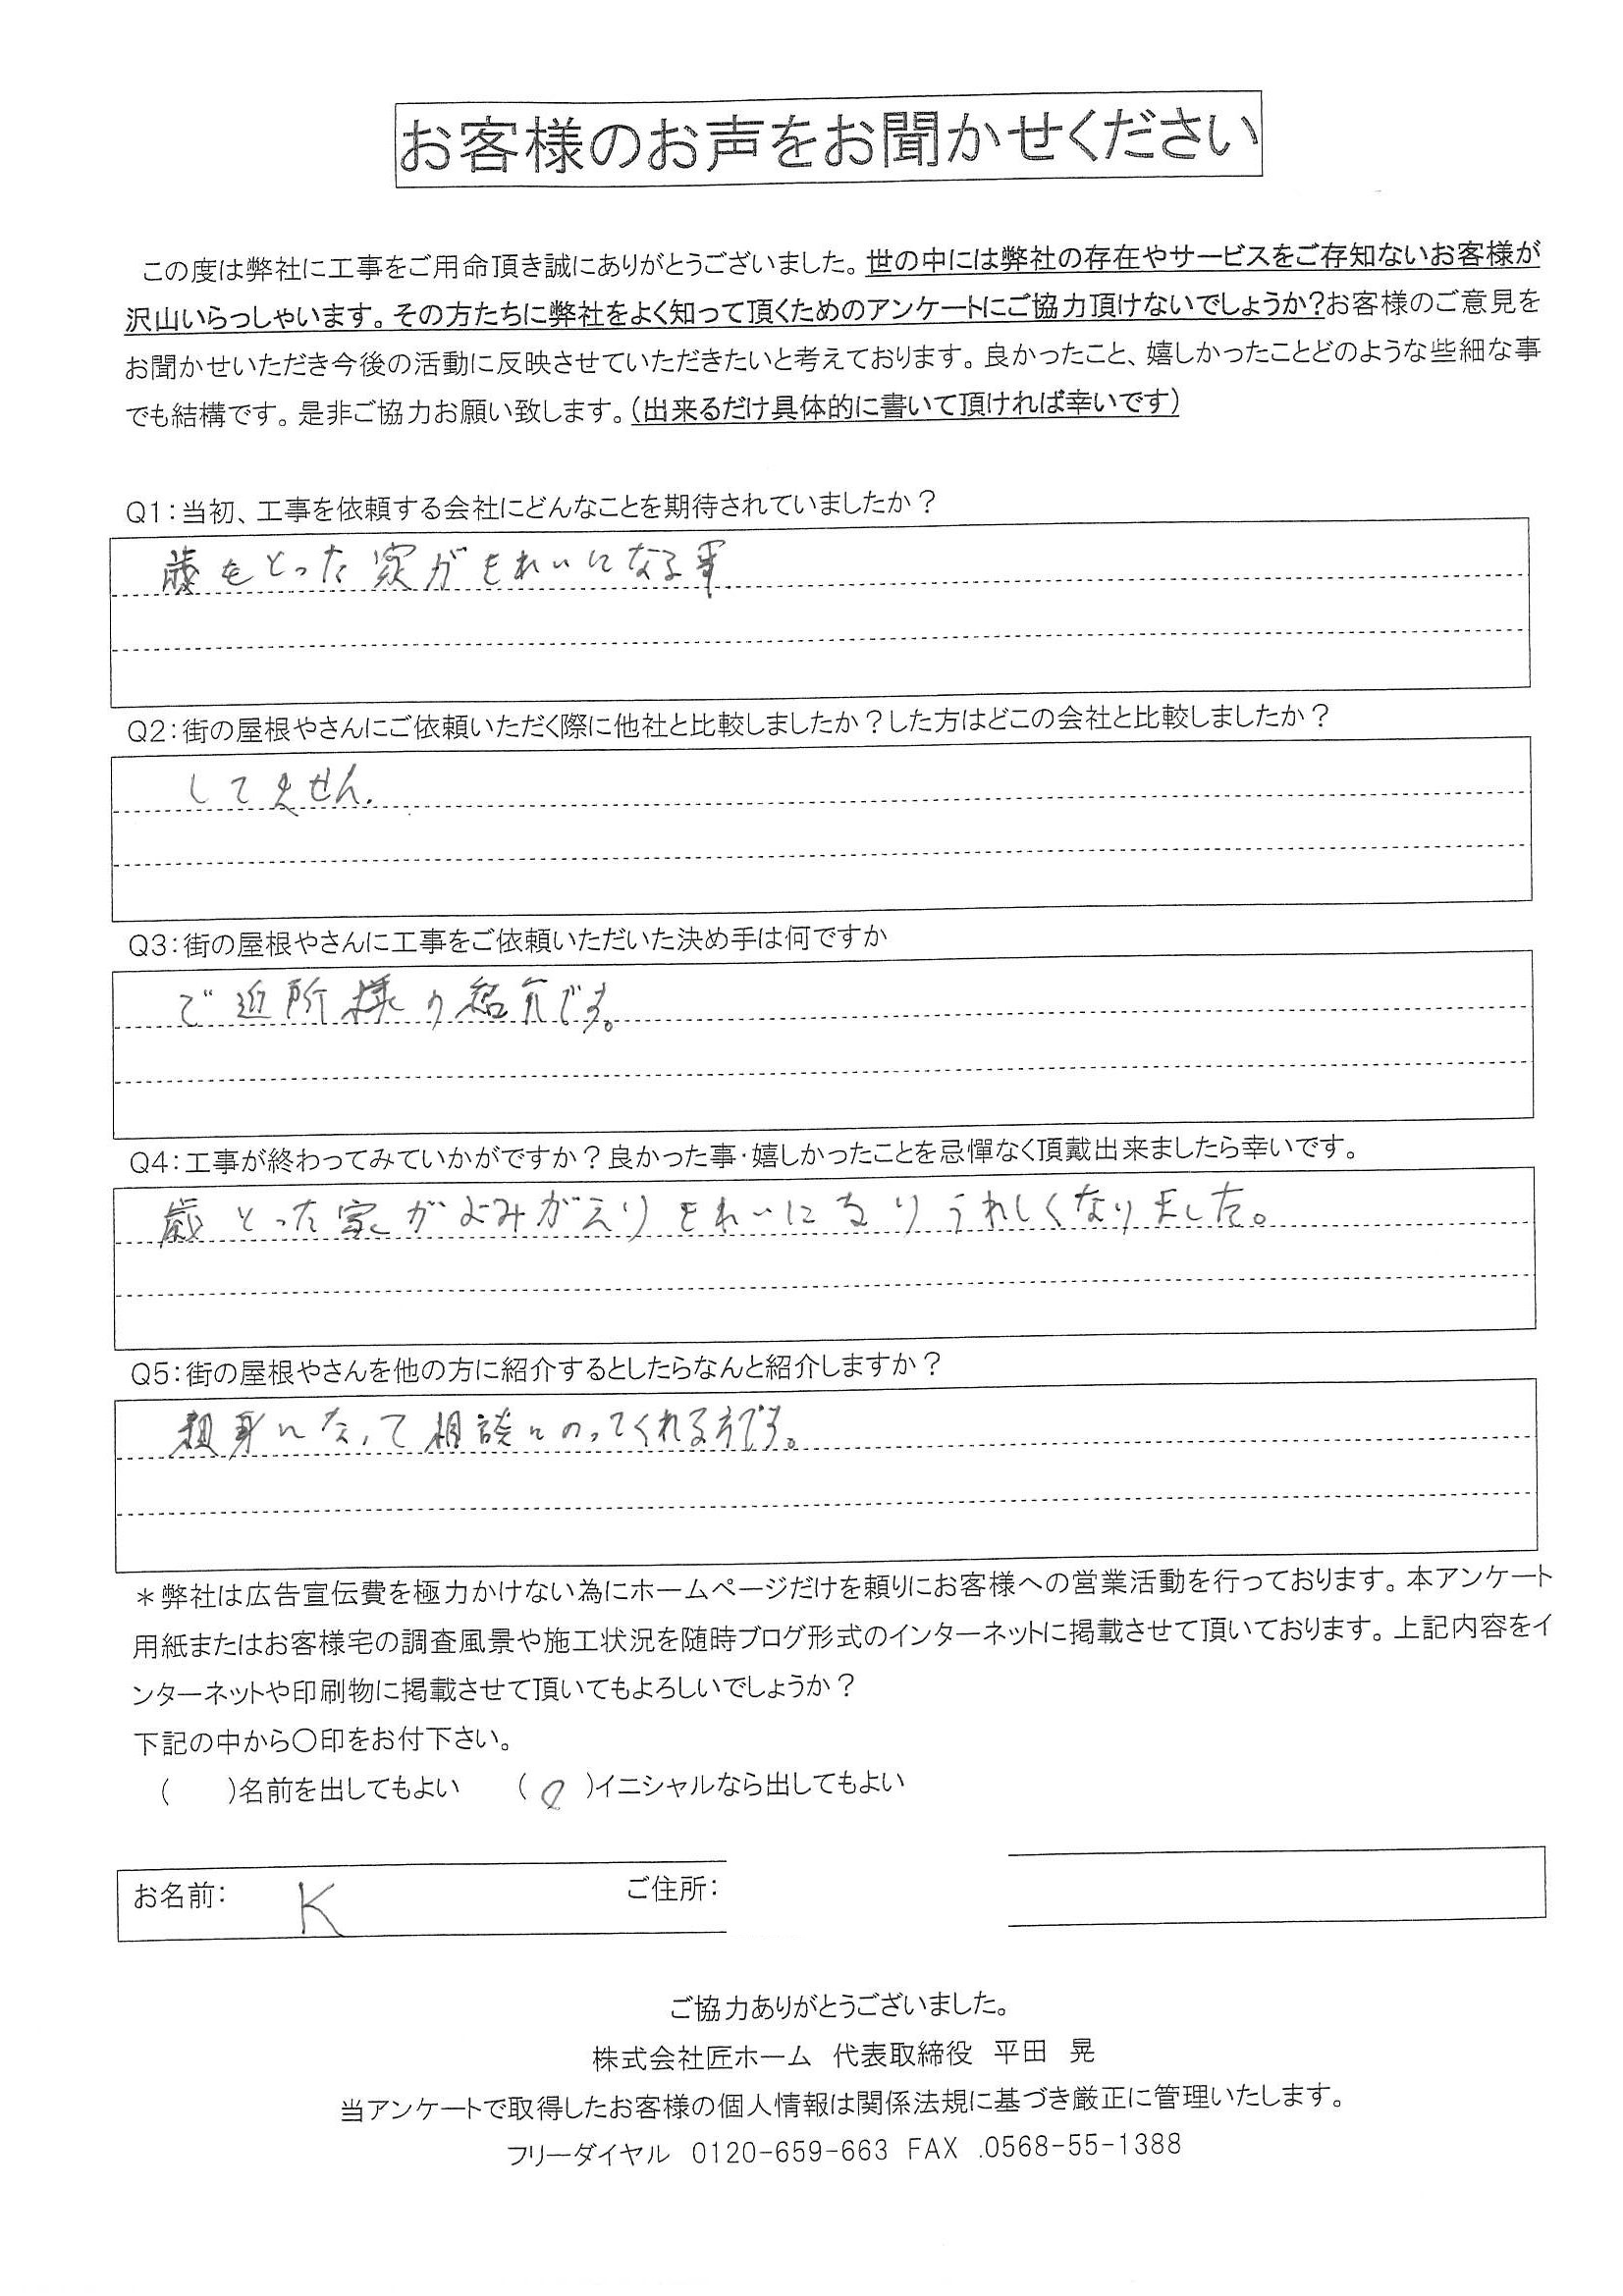 お客様のお声をお聞かせください
この度は弊社に工事をご用命頂き誠にありがとうございました。世の中には弊社の存在やサービスをご存知ないお客様が
沢山いらっしゃいます。その方たちに弊社をよく知って頂くためのアンケートにご協力頂けないでしょうか?お客様のご意見を
お聞かせいただき今後の活動に反映させていただきたいと考えております。良かったこと、嬉しかったことどのような些細な事
でも結構です。是非ご協力お願い致します。(出来るだけ具体的に書いて頂ければ幸いです)
Q1:当初、工事を依頼する会社にどんなことを期待されていましたか?
歳をとった家がきれいになる事
Q2:街の屋根やさんにご依頼いただく際に他社と比較しましたか?した方はどこの会社と比較しましたか?
してません.
Q3:街の屋根やさんに工事をご依頼いただいた決め手は何ですか
ご近所様の紹介です。
Q4:工事が終わってみていかがですか?良かった事・嬉しかったことを忌憚なく頂戴出来ましたら幸いです。
歳とった家がよみがえりきれいになりうれしくなりました。
Q5:街の屋根やさんを他の方に紹介するとしたらなんと紹介しますか?
親身になって相談にのってくれる方です。
*弊社は広告宣伝費を極力かけない為にホームページだけを頼りにお客様への営業活動を行っております。本アンケート
用紙またはお客様宅の調査風景や施工状況を随時ブログ形式のインターネットに掲載させて頂いております。上記内容をイ
ンターネットや印刷物に掲載させて頂いてもよろしいでしょうか?
下記の中から〇印をお付下さい。
(　　)名前を出してもよい　　(〇)イニシャルなら出してもよい
お名前:　K　ご住所:
ご協力ありがとうございました。
株式会社匠ホーム　代表取締役　平田　晃
当アンケートで取得したお客様の個人情報は関係法規に基づき厳正に管理いたします。
フリーダイヤル　0120-659-663　FAX .0568-55-1388